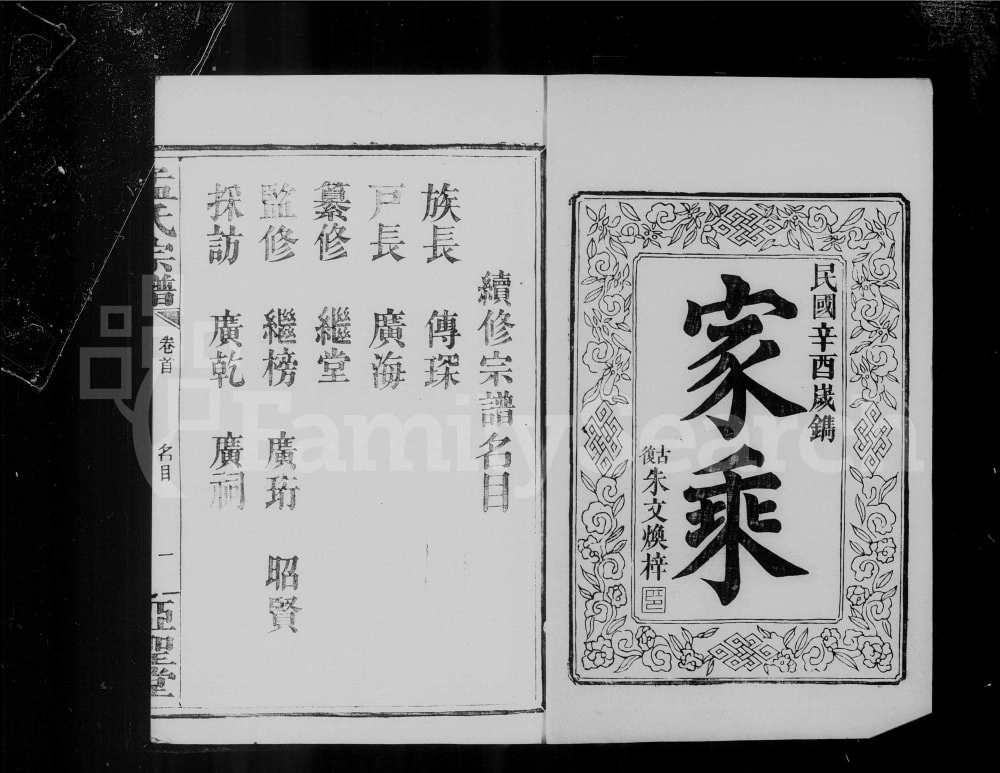 民國辛酉歲鐫
家乘
古復朱文煥梓
續修宗譜名目
族長 傳琛
戸長 廣海
纂修 繼堂
監修 繼榜 廣珩 昭賢
採訪 廣乾 廣祠
孟氏宗譜 卷首 名目 一 亞聖堂
FamilySearch